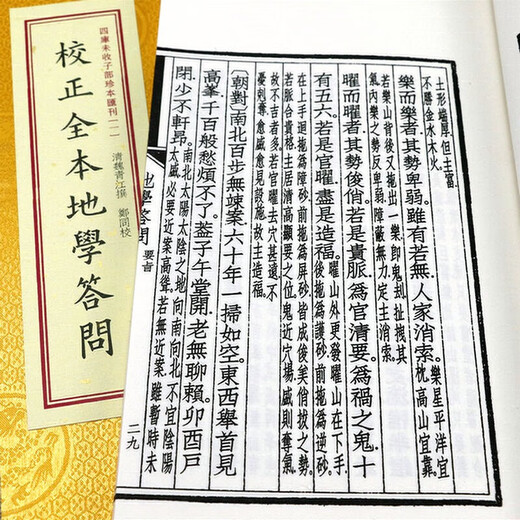 四庫未收子部珍本匯刊(一一)
清魏青江撰 鄭同校
校正全本地學答問
土形端厚。但主富。
不勝金水木火。
樂而樂者其勢卑弱。雖有若無。人家消索。
樂星平洋宜
枕。高山宜靠。
若樂山背後又拖出一樂。即鬼刦扯拽其
氣內樂之勢反卑弱。障蔽無力。定主消索。
曜而曜者其勢俊俏。若是貴脈。為官清要。為禍之鬼十
有五六。若是官曜。盡是造福。
曜山外更發曜山。在下手。
後拖為護砂。前拖為逆砂。
在上手迴拖為障砂。前拖為屏砂。皆成後俏拔之勢。
若脈合貴格。主居清高顯要之位。鬼近穴場。感則奪氣。
故不吉者多。若官曜去穴甚遠。不
憂剋奪。愈感愈見設施。故主造福。
〔朝對〕南北百步無竦案。六十年一掃如空。東西舉首見
高峯。千百般愁煩不了。葢子午堂開。老無聊賴。卯酉戶
閉。少不軒昂。
南北太陽太陰之地。向南向北。不宜陰陽
太盛。必要近案高聳。若無近案。雖暫時未
地學答問
要旨
二九